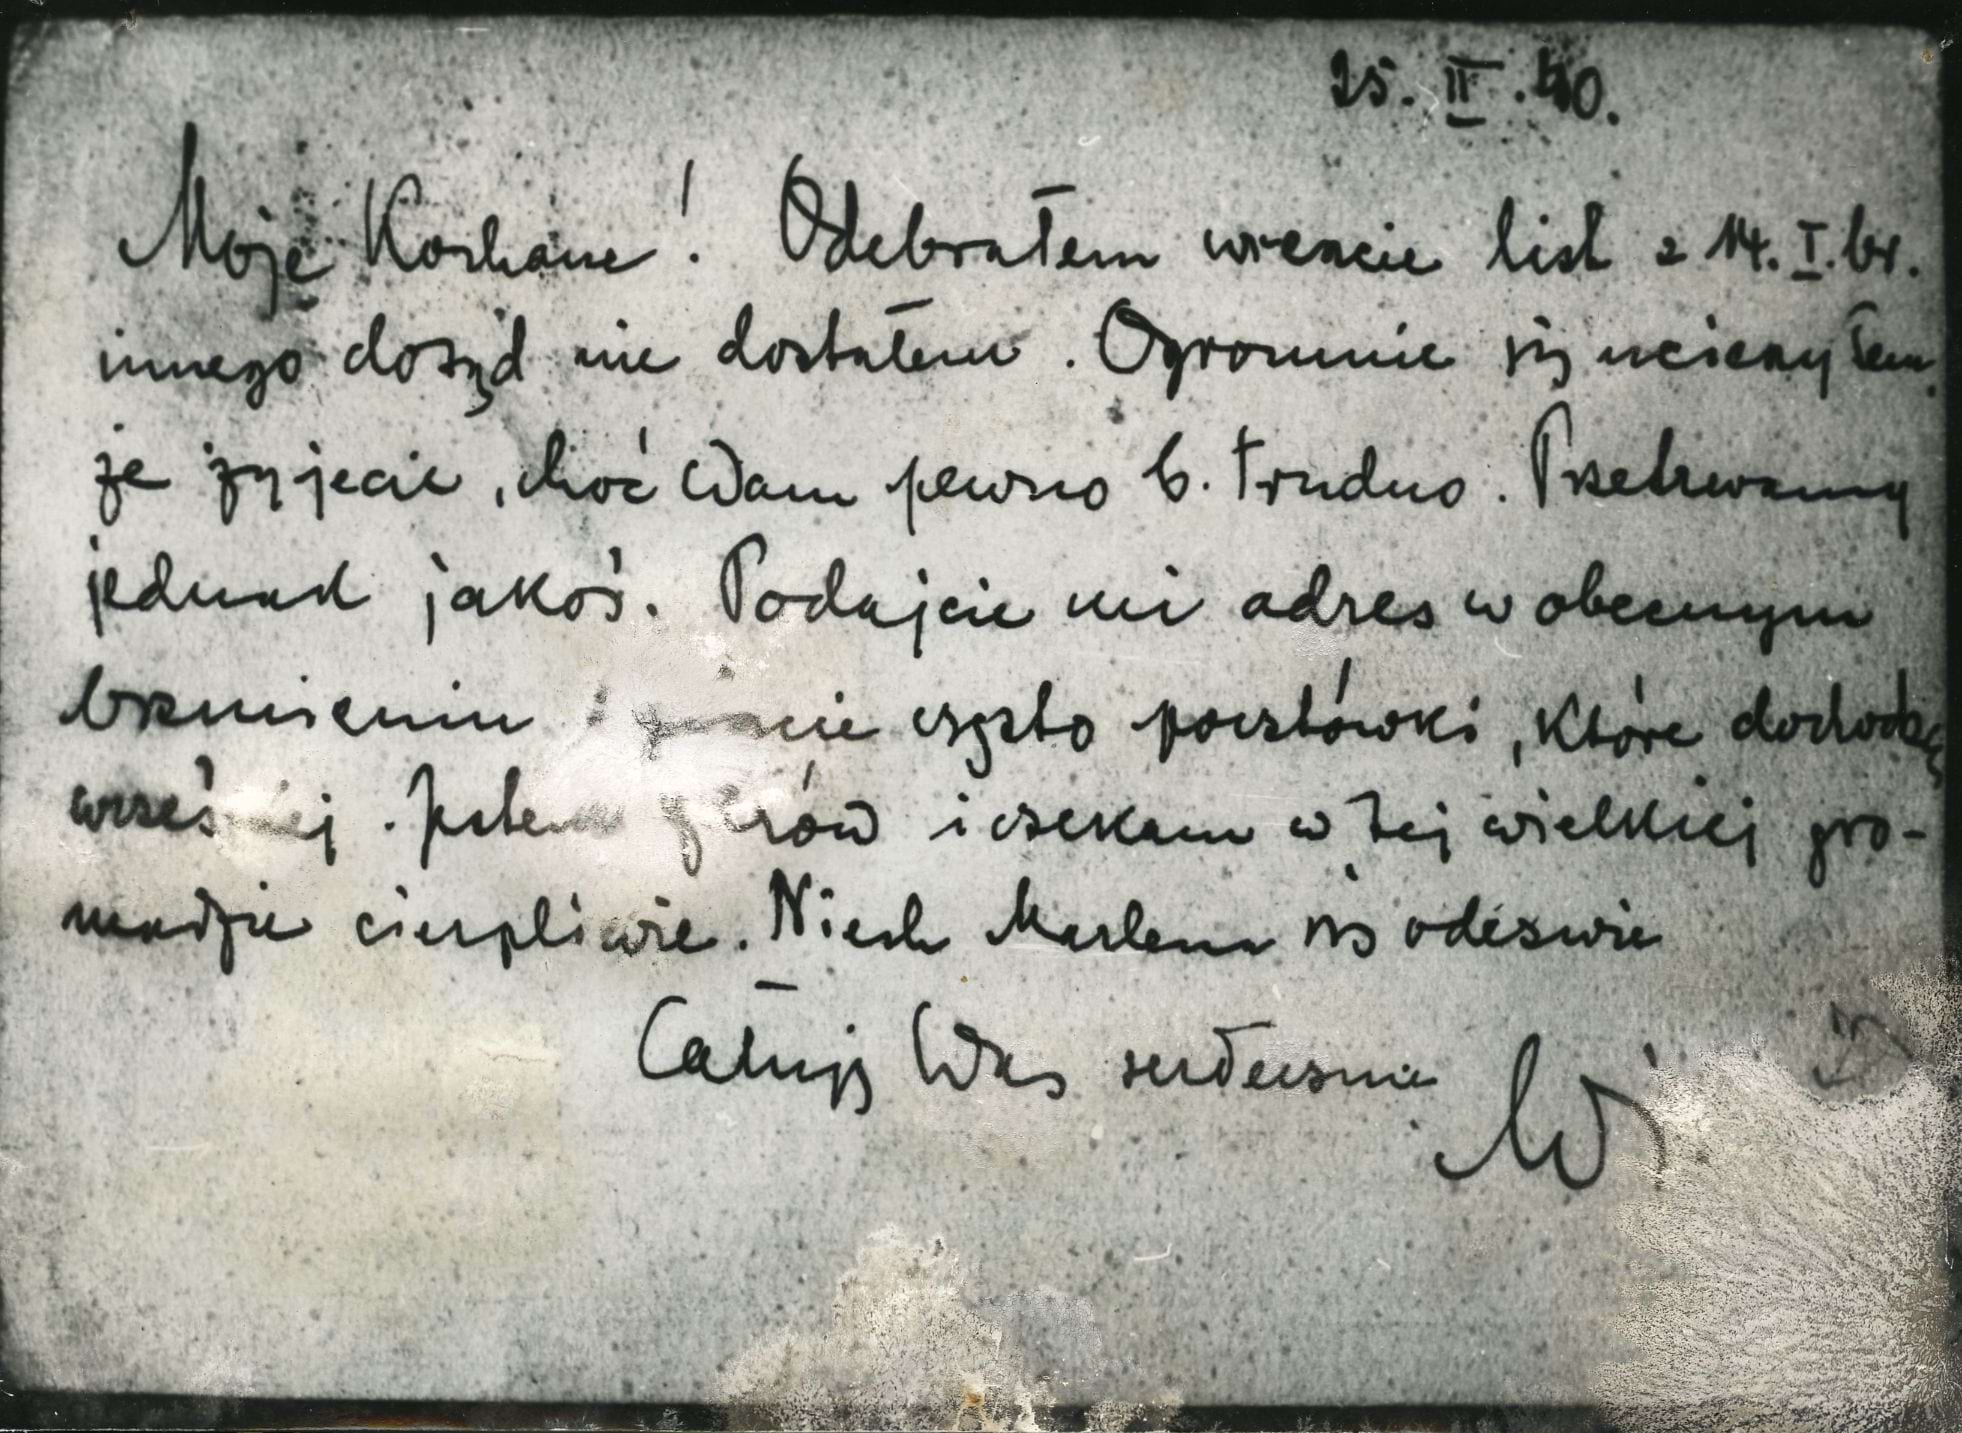 25. II. 40.
Moje Kochane! Odebrałem wreszcie list z 14. I. br.
innego dotąd nie dostałem. Ogromnie się ucieszyłem,
że żyjecie, choć Wam pewno b. trudno. Przetrwamy
jednak jakoś. Podajcie mi adres w obecnym
brzmieniu i piszcie często pocztówki, które dochodzą
wcześniej. Jestem zdrów i czekam w tej wielkiej gro-
madzie cierpliwie. Niech Marlena się odezwie
Całuję Was serdecznie